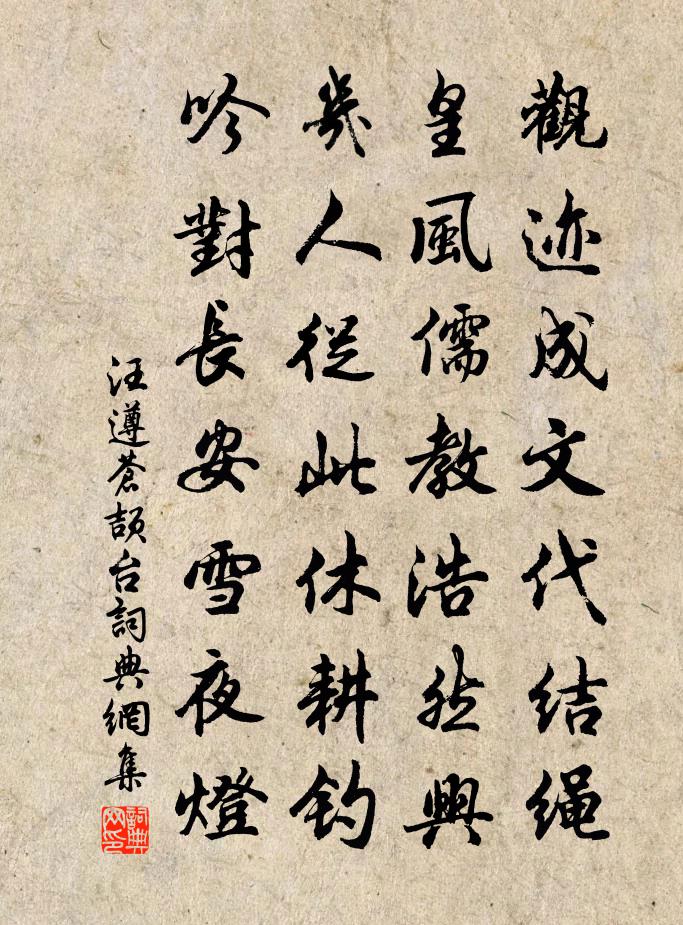 觀迹成文代结绳
皇風儒教浩然興
幾人從此休耕钓
吟對長安雪夜燈
汪遵蒼頡台詞典網集
詞典
网印